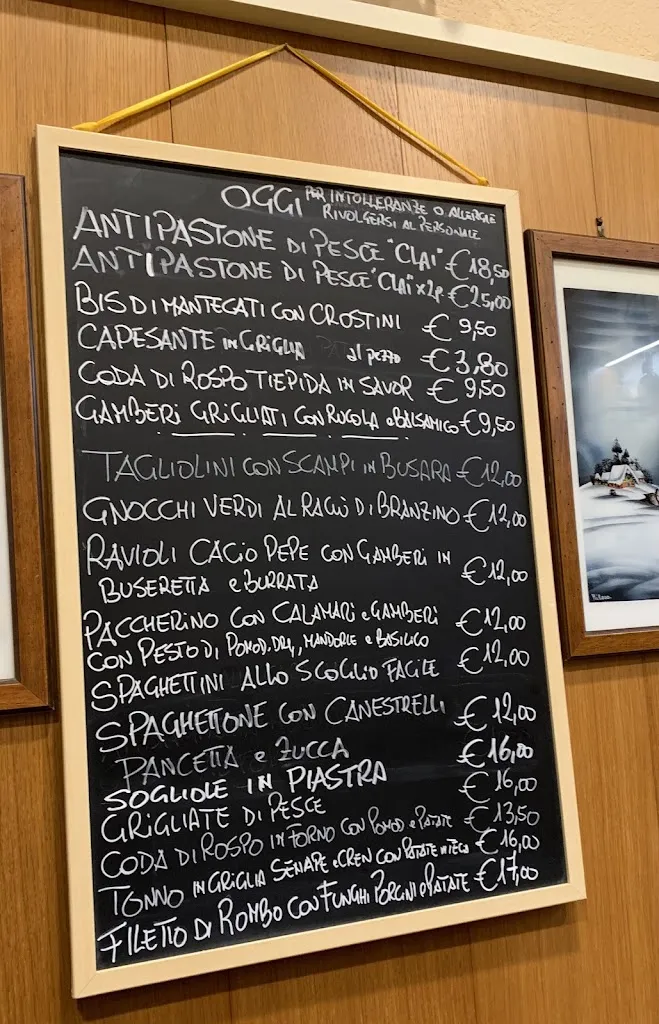 OGGI PER INTOLLERANZE O ALLERGIE
RIVOLGERSI AL PERSONALE
ANTIPASTONE DI PESCE "CLAI" €18,50
ANTIPASTONE DI PESCE "CLAI" x2p €25,00
BIS DI MANTECATI CON CROSTINI € 9,50
CAPESANTE IN GRIGLIA al pezzo € 3,80
CODA DI ROSPO TIEPIDA IN SAVOR € 9,50
GAMBERI GRIGLIATI CON RUCOLA e BALSAMICO €9,50
TAGLIOLINI CON SCAMPI IN BUSARA €12,00
GNOCCHI VERDI AL RAGÙ DI BRANZINO €12,00
RAVIOLI CACIO PEPE CON GAMBERI IN
BUSERETTA e BURRATA €12,00
PACCHERINO CON CALAMARI e GAMBERI €12,00
CON PESTO DI POMOD. DRY, MANDORLE e BASILICO
SPAGHETTINI ALLO SCOGLIO FACILE €12,00
SPAGHETTONE CON CANESTRELLI €12,00
PANCETTA e ZUCCA
SOGLIOLE IN PIASTRA €16,00
GRIGLIATE DI PESCE €16,00
CODA DI ROSPO IN FORNO CON POMOD e PATATE €13,50
TONNO IN GRIGLIA SENAPE e CREN CON PATATE IN TECIA €16,00
FILETTO DI ROMBO CON FUNGHI PORCINI e PATATE €17,00